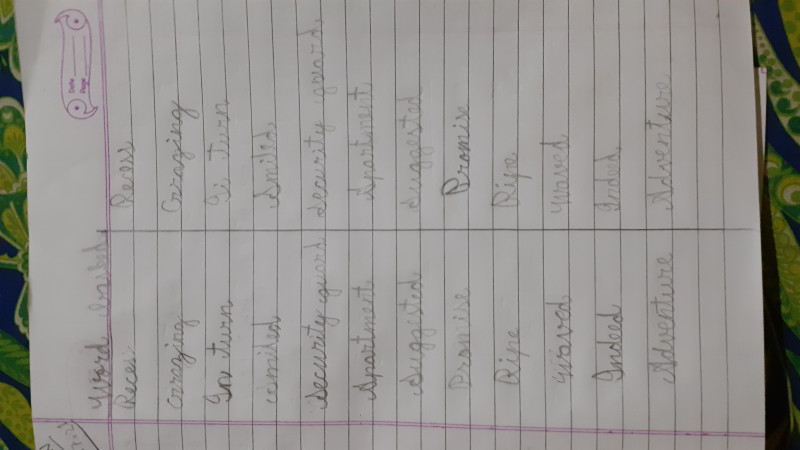 Date
Page
Word
Recess
Grazing Grazing
In turn turn
Smiled Smiled
Security guard Security guard.
Apartment Apartment
Suggested Suggested
Promise Promise
Ripe Ripe
Waved Waved
Indeed Indeed
Adventure Adventure